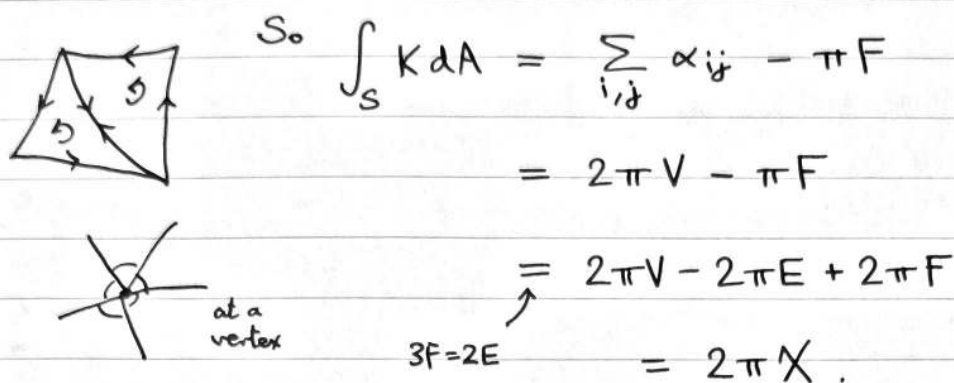 So ∫_S K dA = Σ_{i,j} α_{ij} - πF
= 2πV - πF
= 2πV - 2πE + 2πF
at a
vertex
3F=2E
= 2πχ.